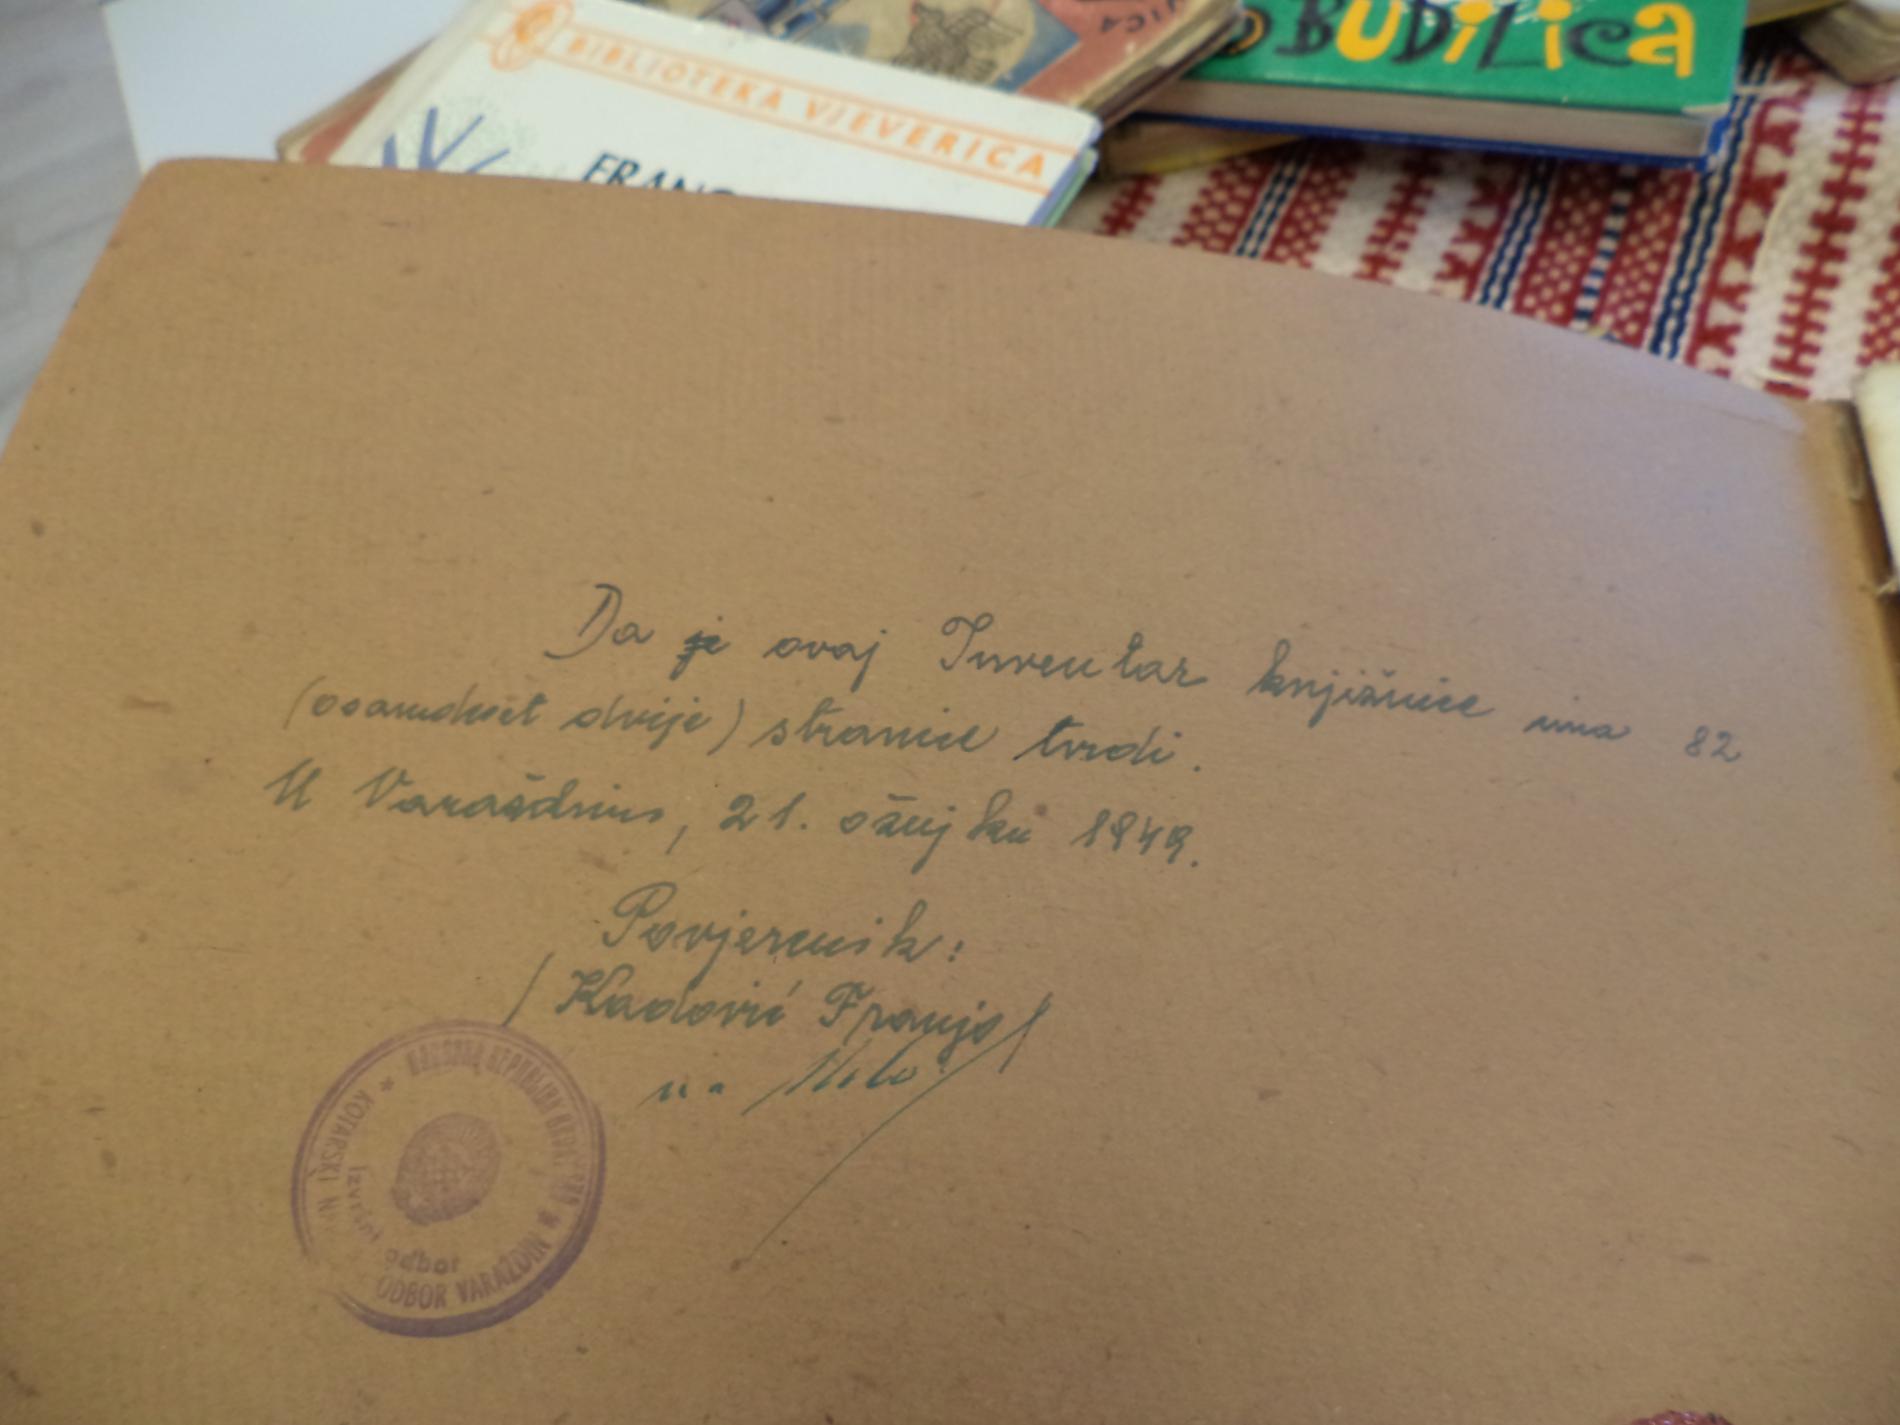 BIBLIOTEKA VJEVERICA
BUDILICA
Da je ovaj Inventar knjižnice ima 82
(osamdeset dvije) stranice tvrdi.
U Varaždinu, 21. ožujka 1949.
Povjerenik:
Franjo
KOTARSKI
ODBOR VARAŽDIN
Izvršni odbor